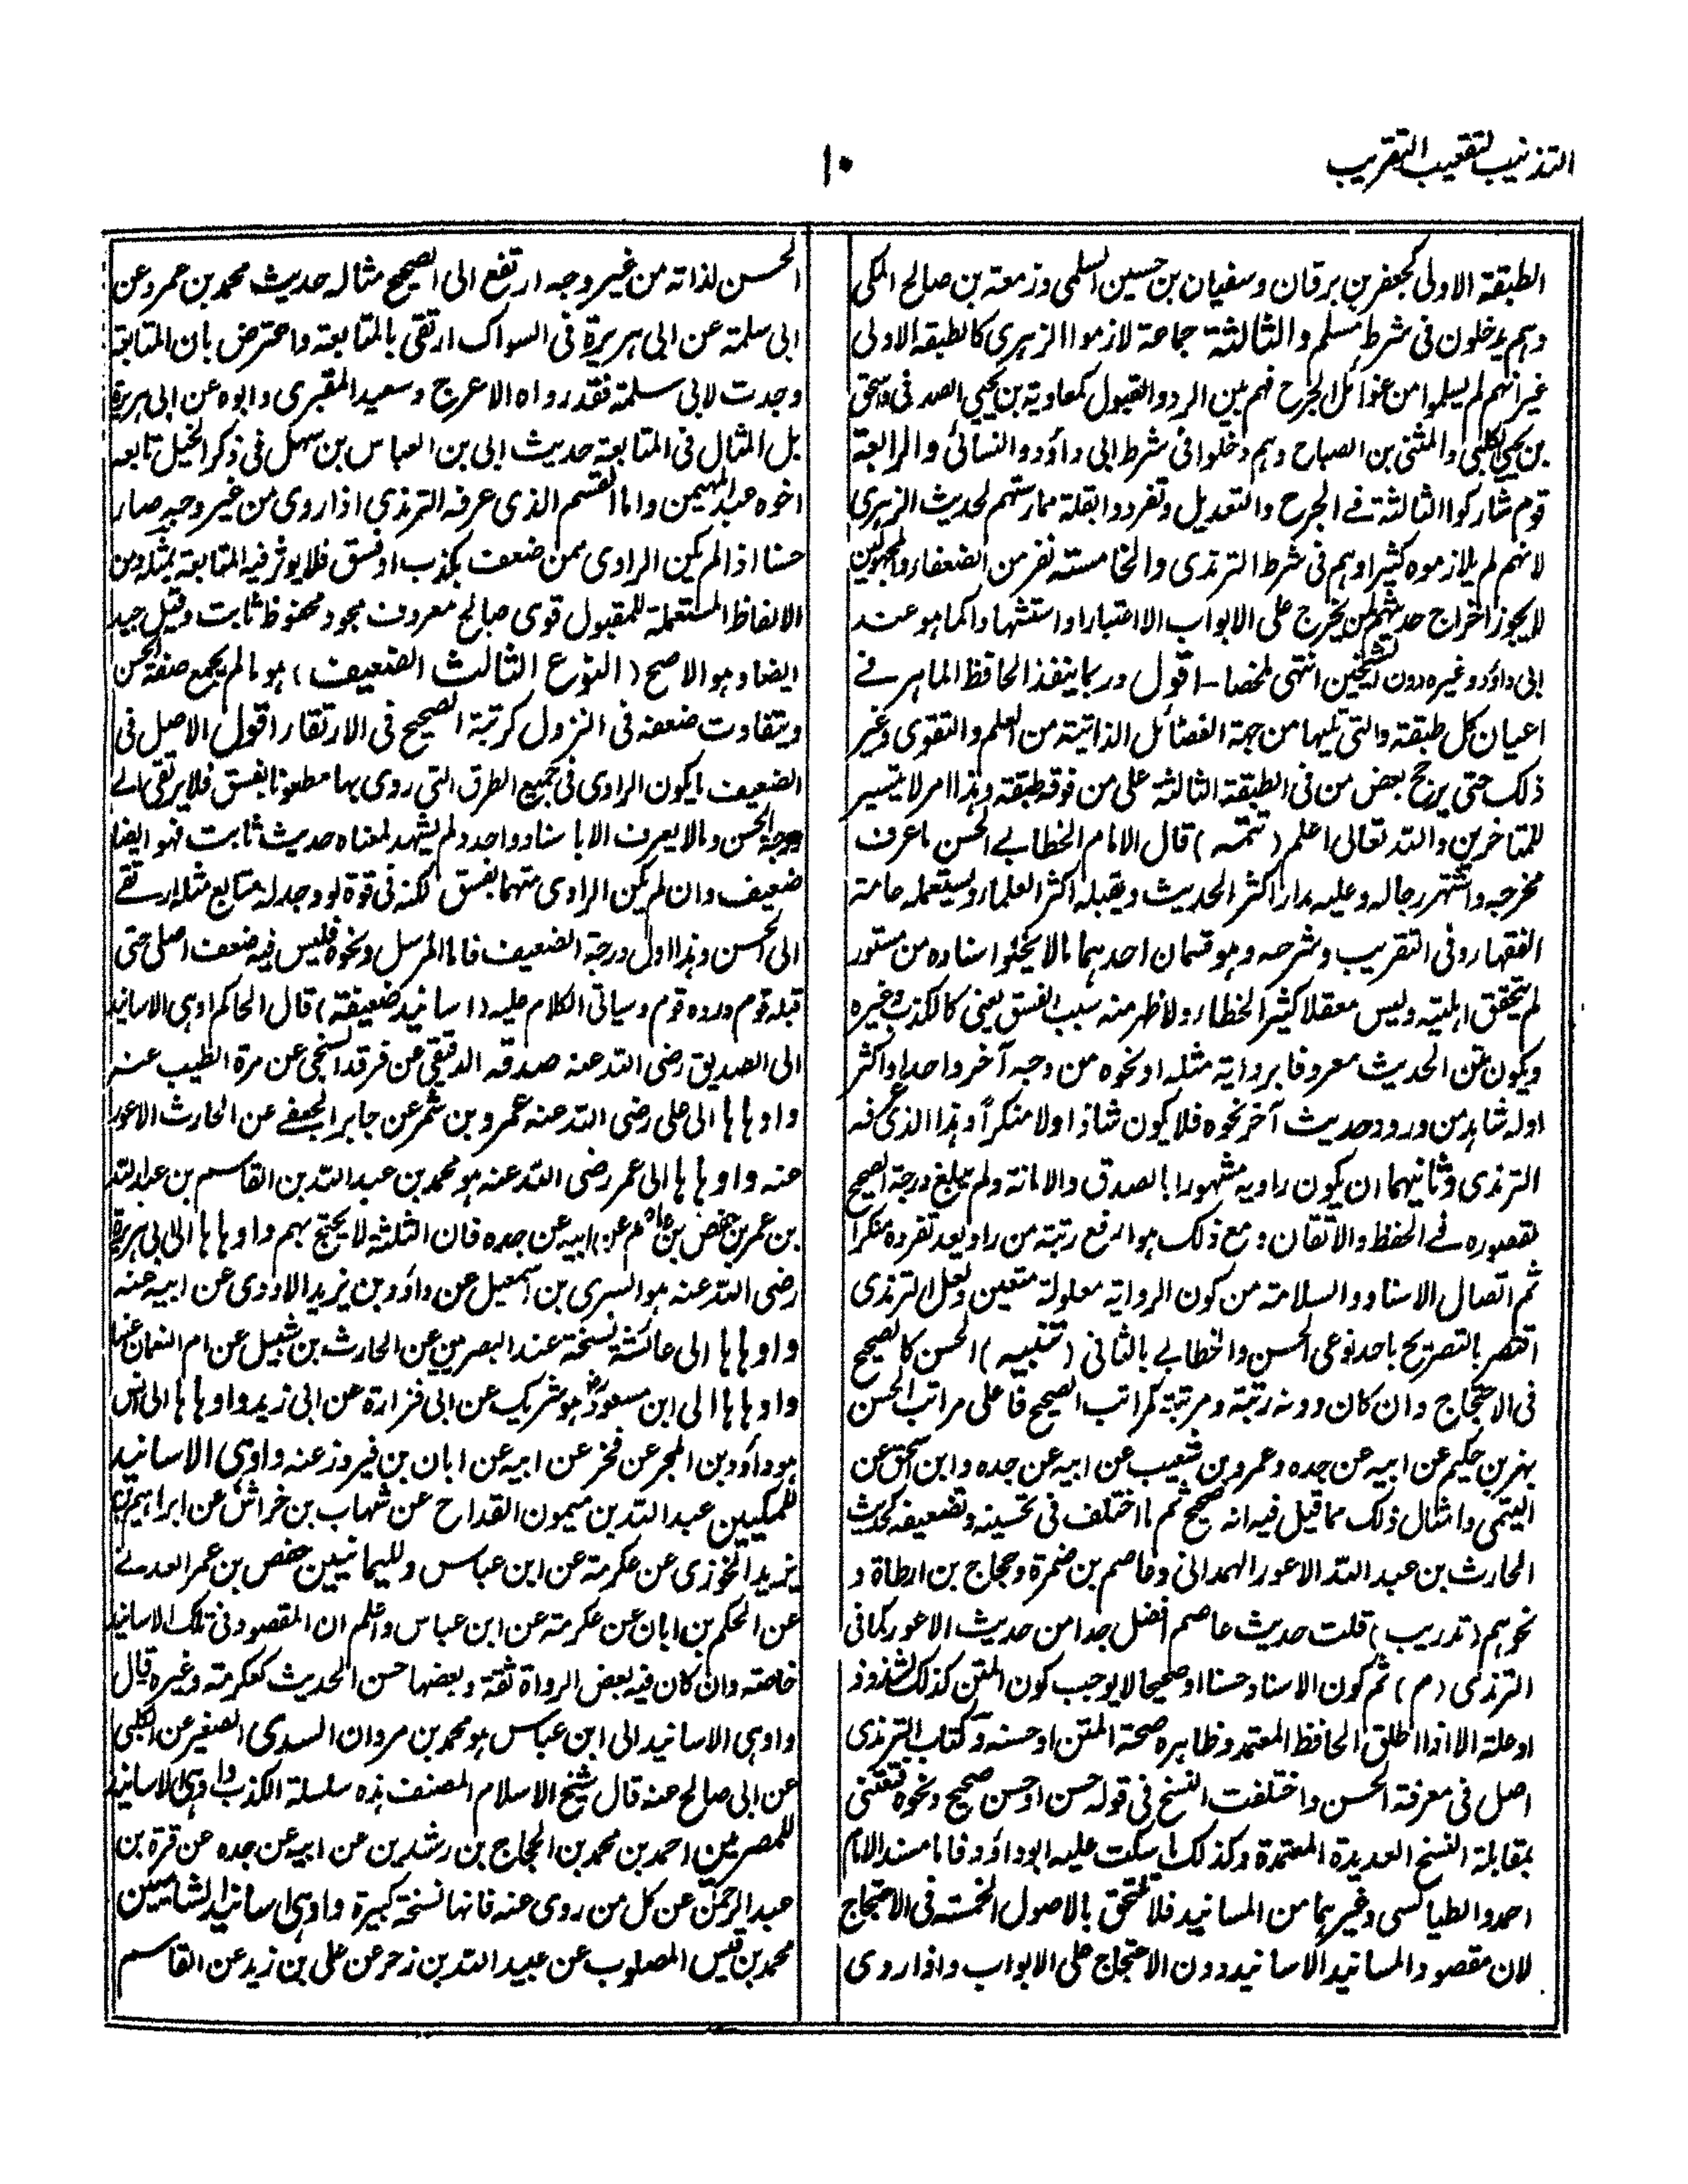 التذنيب لتعقيب التقريب
١٠
الطبقة الاولى كجعفر بن برقان وسفيان بن حسين السلمى وزمعة بن صالح المكى
وهم يدخلون فى شرط مسلم والثالثة جماعة لازموا الزهرى كالطبقة الاولى
غير انهم لم يسلموا من غوائل الجرح فهم بين الرد والقبول كمعاوية بن يحيى الصدفى واسحق
بن يحيى الكلبى والمثنى بن الصباح وهم دخلوا فى شرط ابى داؤد والنسائى والرابعة
قوم شاركوا الثالثة فے الجرح والتعديل وتفردوا بقلة ممارستهم لحديث الزهرى
لانهم لم يلازموه كثيرا وهم فى شرط الترمذى والخامسة نفر من الضعفاء والمجهولين
لايجوز اخراج حديثهم لمن يخرج على الابواب الا اعتبارا واستشهادا كما هو عند
ابى داؤد وغيره دون الشيخين انتهى ملخصا- اقول وربما ينفذ الحافظ الماهر فے
اعيان كل طبقة والتى تليها من جهة الفضائل الذاتية من العلم والتقوى وغير
ذلك حتى يرجح بعض من فى الطبقة الثالثة على من فوقه طبقة وهذا امر لا يتيسر
للمتاخرين والله تعالى اعلم (تتمه) قال الامام الخطابے الحسن ما عرف
مخرجه واشتهر رجاله وعليه مدار اكثر الحديث ويقبله اكثر العلماء ويستعمله عامة
الفقهاء وفى التقريب وشرحه وهو قسمان احدهما ما لا يخلو اسناده من مستور
لم يتحقق اهليته وليس مغفلا كثير الخطاء ولا ظهر منه سبب الفسق يعنى كالكذب وغيره
ويكون متن الحديث معروفا برواية مثله او نحوه من وجه آخر واحد او اكثر
اوله شاهد من ورود حديث آخر نحوه فلا يكون شاذا ولا منكرا وهذا الذى عرفه
الترمذى وثانيهما ان يكون راويه مشهورا بالصدق والامانة ولم يبلغ درجة الصحيح
لقصوره فے الحفظ والاتقان ؛ مع ذلك هو ارفع رتبة من راو يعد تفرده منكرا
ثم اتصال الاسناد والسلامة من كون الرواية معلولة متعين ولعل الترمذى
اقتصر بالتصريح باحد نوعى الحسن والخطابے بالثانى (تنبيه) الحسن كالصحيح
فى الاحتجاج وان كان دونه رتبة ومرتبة كمراتب الصحيح فاعلى مراتب الحسن
بهز بن حكيم عن ابيه عن جده وعمرو بن شعيب عن ابيه عن جده وابن اسحق عن
التيمى وامثال ذلك مما قيل فيه انه صحيح ثم ما اختلف فى تحسينه وتضعيفه كحديث
الحارث بن عبد الله الاعور الهمدانى وعاصم بن ضمرة وحجاج بن ارطاة و
نحوهم (تدريب) قلت حديث عاصم افضل جدا من حديث الاعور كما فى
الترمذى (م) ثم كون الاسناد حسنا او صحيحا لا يوجب كون المتن كذلك لشذوذ
او علة الا اذا اطلق الحافظ المعتمد وظاهره صحة المتن او حسنه وكتاب الترمذى
اصل فى معرفة الحسن واختلفت النسخ فى قوله حسن او حسن صحيح ونحوه فتعتنى
بمقابلة النسخ العديدة المعتمدة وكذلك ما سكت عليه ابو داؤد فاما مسند الامام
احمد والطيالسى وغيرهما من المسانيد فلا تلتحق بالاصول الخمسة فى الاحتجاج
لان مقصود المسانيد الاسانيد دون الاحتجاج على الابواب واذا روى
الحسن لذاته من غير وجه ارتفع الى الصحيح مثاله حديث محمد بن عمرو عن
ابى سلمة عن ابى هريرة فى السواك ارتقى بالمتابعة واعترض بان المتابعة
وجدت لابى سلمة فقد رواه الاعرج وسعيد المقبرى وابوه عن ابى هريرة
بل المثال فى المتابعة حديث ابى بن العباس بن سهل فى ذكر الخيل تابعه
اخوه عبد المهيمن واما القسم الذى عرفه الترمذى اذا روى من غير وجه صار
حسنا اذا لم يكن الراوى ممن ضعف بكذب او فسق فلا يوثر فيه المتابعة بمثله ومن
الالفاظ المستعملة للمقبول قوى صالح معروف مجود محفوظ ثابت وقيل جيد
ايضا وهو الاصح (النوع الثالث الضعيف) هو ما لم يجمع صفة الحسن
ويتفاوت ضعفه فى النزول كرتبة الصحيح فى الارتقاء اقول الاصل فى
الضعيف ما يكون الراوى فى جميع الطرق التى روى بها مطعونا بفسق فلا يرتقى الے
درجة الحسن وما لا يعرف الا باسناد واحد ولم يشهد لمعناه حديث ثابت فهو ايضا
ضعيف وان لم يكن الراوى متهما بفسق لكنه فى قوة لو وجد له متابع مثله ارتقے
الى الحسن وهذا اول درجة الضعيف فاما المرسل ونحوه فليس فيه ضعف اصلى حتى
قبله قوم ورده قوم وسياتى الكلام عليه (اسانيد ضعيفة) قال الحاكم اوهى الاسانيد
الى الصديق رضى الله عنه صدقه الدقيقى عن فرقد السبخى عن مرة الطيب عنه
واوهاها الى على رضى الله عنه عمرو بن شمر عن جابر الجعفے عن الحارث الاعور
عنه واوهاها الى عمر رضى الله عنه هو محمد بن عبد الله بن القاسم بن عبد الله
بن عمر بن حفص بن عاصم عن ابيه عن جده فان الثلثة لا يحتج بهم واوهاها الى ابى هريرة
رضى الله عنه هو السرى بن اسمعيل عن داؤد بن يزيد الاودى عن ابيه عنه
واوهاها الى عائشة نسخة عند البصريين عن الحارث بن شبيل عن ام النعمان عنها
واوهاها الى ابن مسعودؓ هو شريك عن ابى فزارة عن ابى زيد واوهاها الى انس
هو داؤد بن المحبر عن فخر عن ابيه عن ابان بن فيروز عنه واوهى الاسانيد
للمكيين عبد الله بن ميمون القداح عن شهاب بن خراش عن ابراهيم بن
يزيد الخوزى عن عكرمة عن ابن عباس ولليمانيين حفص بن عمر العدنے
عن الحكم بن ابان عن عكرمة عن ابن عباس واعلم ان المقصود فى تلك الاسانيد
خاصة وان كان فيه بعض الرواة ثقة وبعضها حسن الحديث كعكرمة وغيره قال
واوهى الاسانيد الى ابن عباس هو محمد بن مروان السدى الصغير عن الكلبى
عن ابى صالح عنه قال شيخ الاسلام المصنف هذه سلسلة الكذب واوهى الاسانيد
للمصريين احمد بن محمد بن الحجاج بن رشدين عن ابيه عن جده عن قرة بن
عبد الرحمن عن كل من روى عنه فانها نسخة كبيرة واوهى اسانيد الشاميين
محمد بن قيس المصلوب عن عبيد الله بن زحر عن على بن زيد عن القاسم